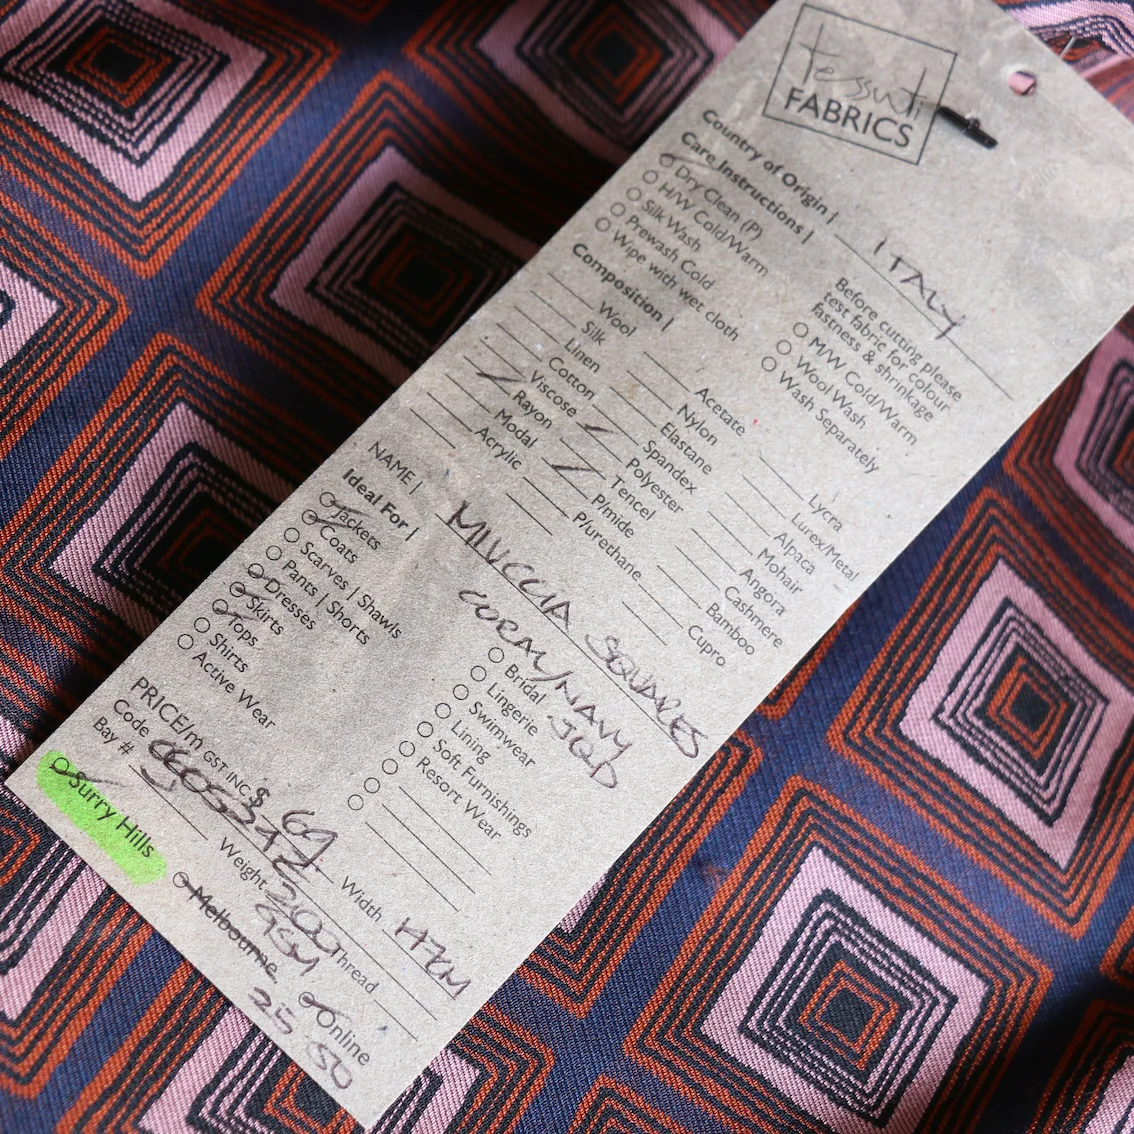 tessuti
FABRICS
Country of Origin | ITALY
Care Instructions |
Dry Clean (P)
H/W Cold/Warm
Silk Wash
Prewash Cold
Wipe with wet cloth
Before cutting please
test fabric for colour
fastness & shrinkage
M/W Cold/Warm
Wool Wash
Wash Separately
Composition |
Wool
Silk
Linen
Cotton
Viscose
Rayon
Modal
Acrylic
Acetate
Nylon
Elastane
Spandex
Polyester
Tencel
P/mide
P/urethane
Lycra
Lurex/Metal
Alpaca
Mohair
Angora
Cashmere
Bamboo
Cupro
NAME | MIUCCIA SQUARES
CORAL/NAVY
JQD
Ideal For |
Jackets
Coats
Scarves | Shawls
Pants | Shorts
Dresses
Skirts
Tops
Shirts
Active Wear
Bridal
Lingerie
Swimwear
Lining
Soft Furnishings
Resort Wear
PRICE/m GST INC. $ 69
Code
Bay #
Weight 200
GSM
Width
Thread
Surry Hills
Melbourne
Online
25
50